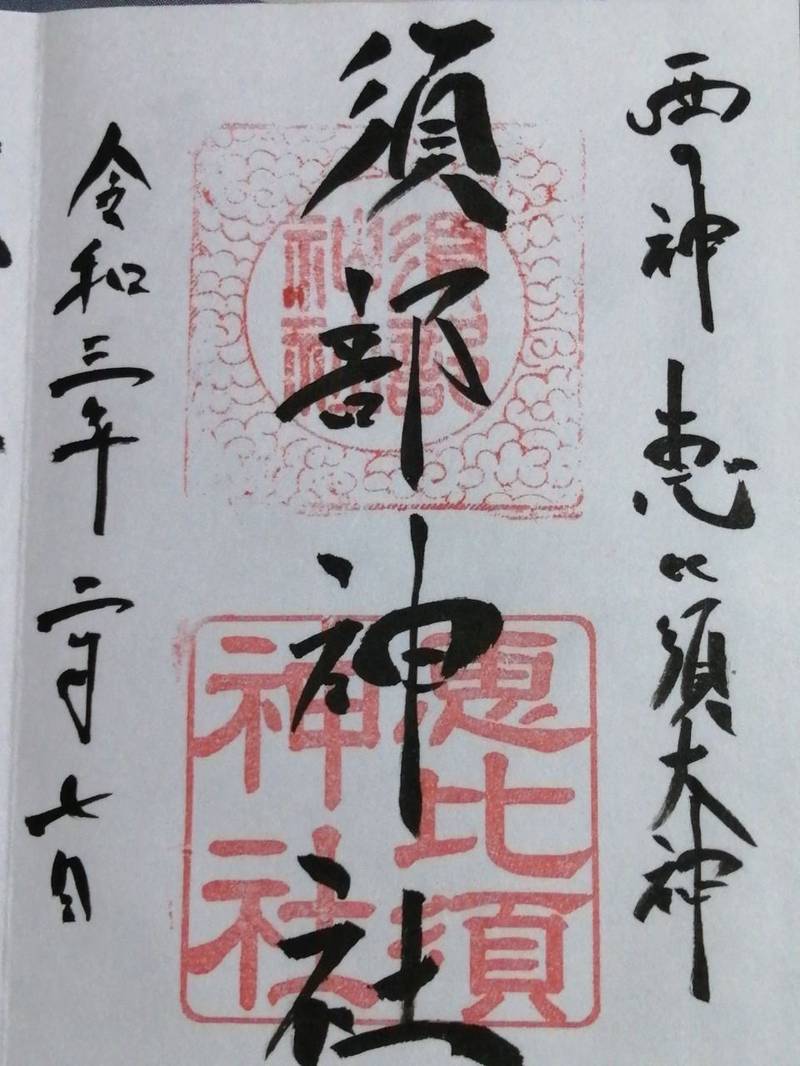 西の神 恵比須大神
須部神社
須部神社
恵比須
神社
令和三年 二月 七日